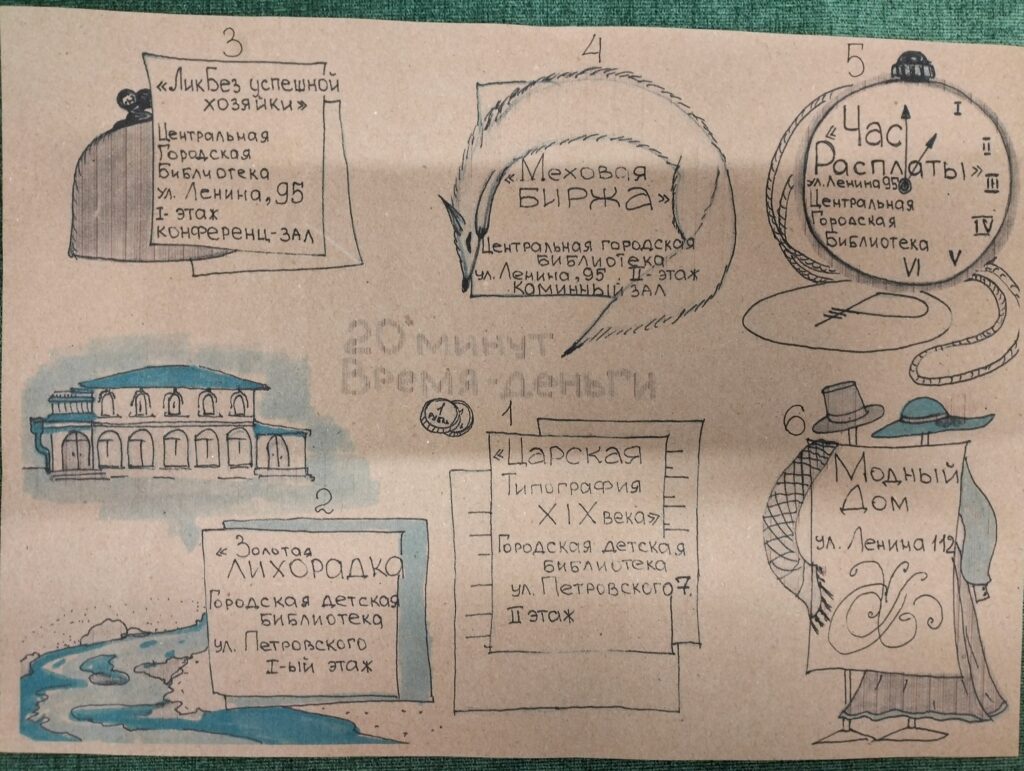 3
«ЛикБез успешной
хозяйки»
Центральная
Городская
Библиотека
ул. Ленина, 95
I- этаж
конференц-зал
4
«Меховая
БИРЖА»
Центральная городская
библиотека
ул. Ленина, 95 II- этаж
Каминный зал
5
«Час
Расплаты»
ул. Ленина 95
Центральная
Городская
Библиотека
I
II
III
IV
V
VI
20 минут
Время-деньги
1
«Царская
Типография
XIX века»
Городская детская
библиотека
ул. Петровского 7.
II этаж
2
«Золотая
ЛИХОРАДКА
Городская детская
библиотека
ул. Петровского
I-ый этаж
6
Модный
Дом
ул. Ленина 112